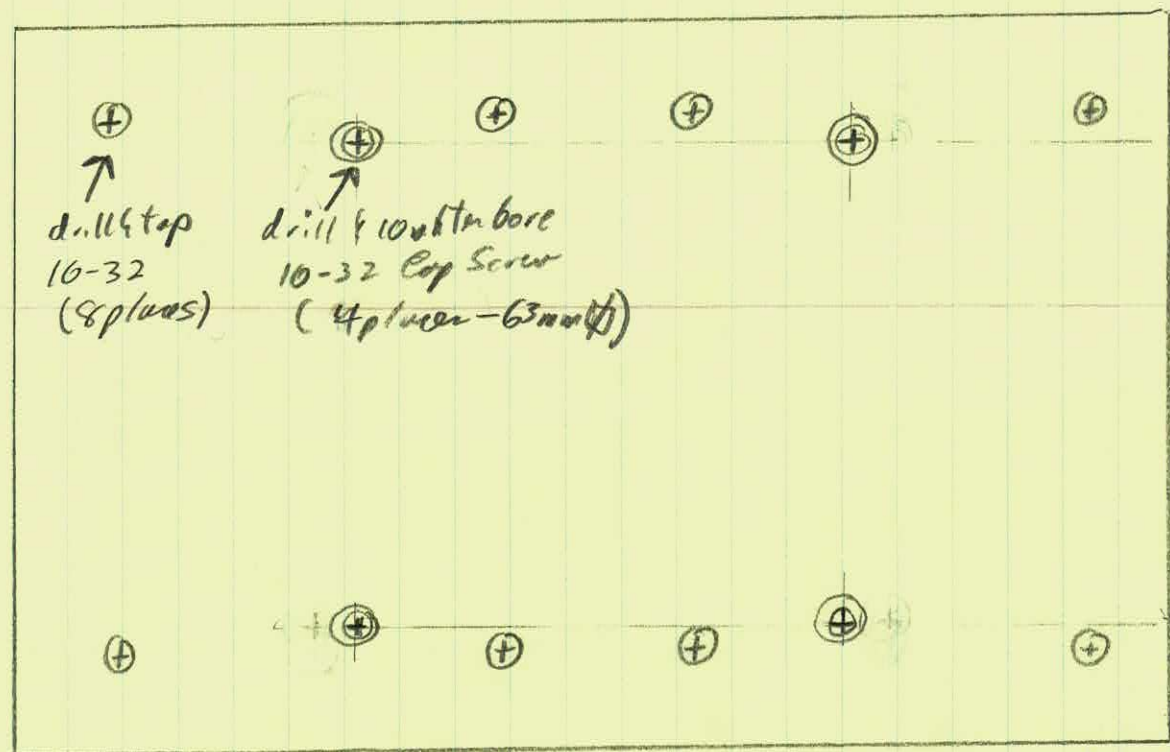 drill & tap
10-32
(8 places)
drill & counterbore
10-32 Cap Screw
( 4 places - 63mm )